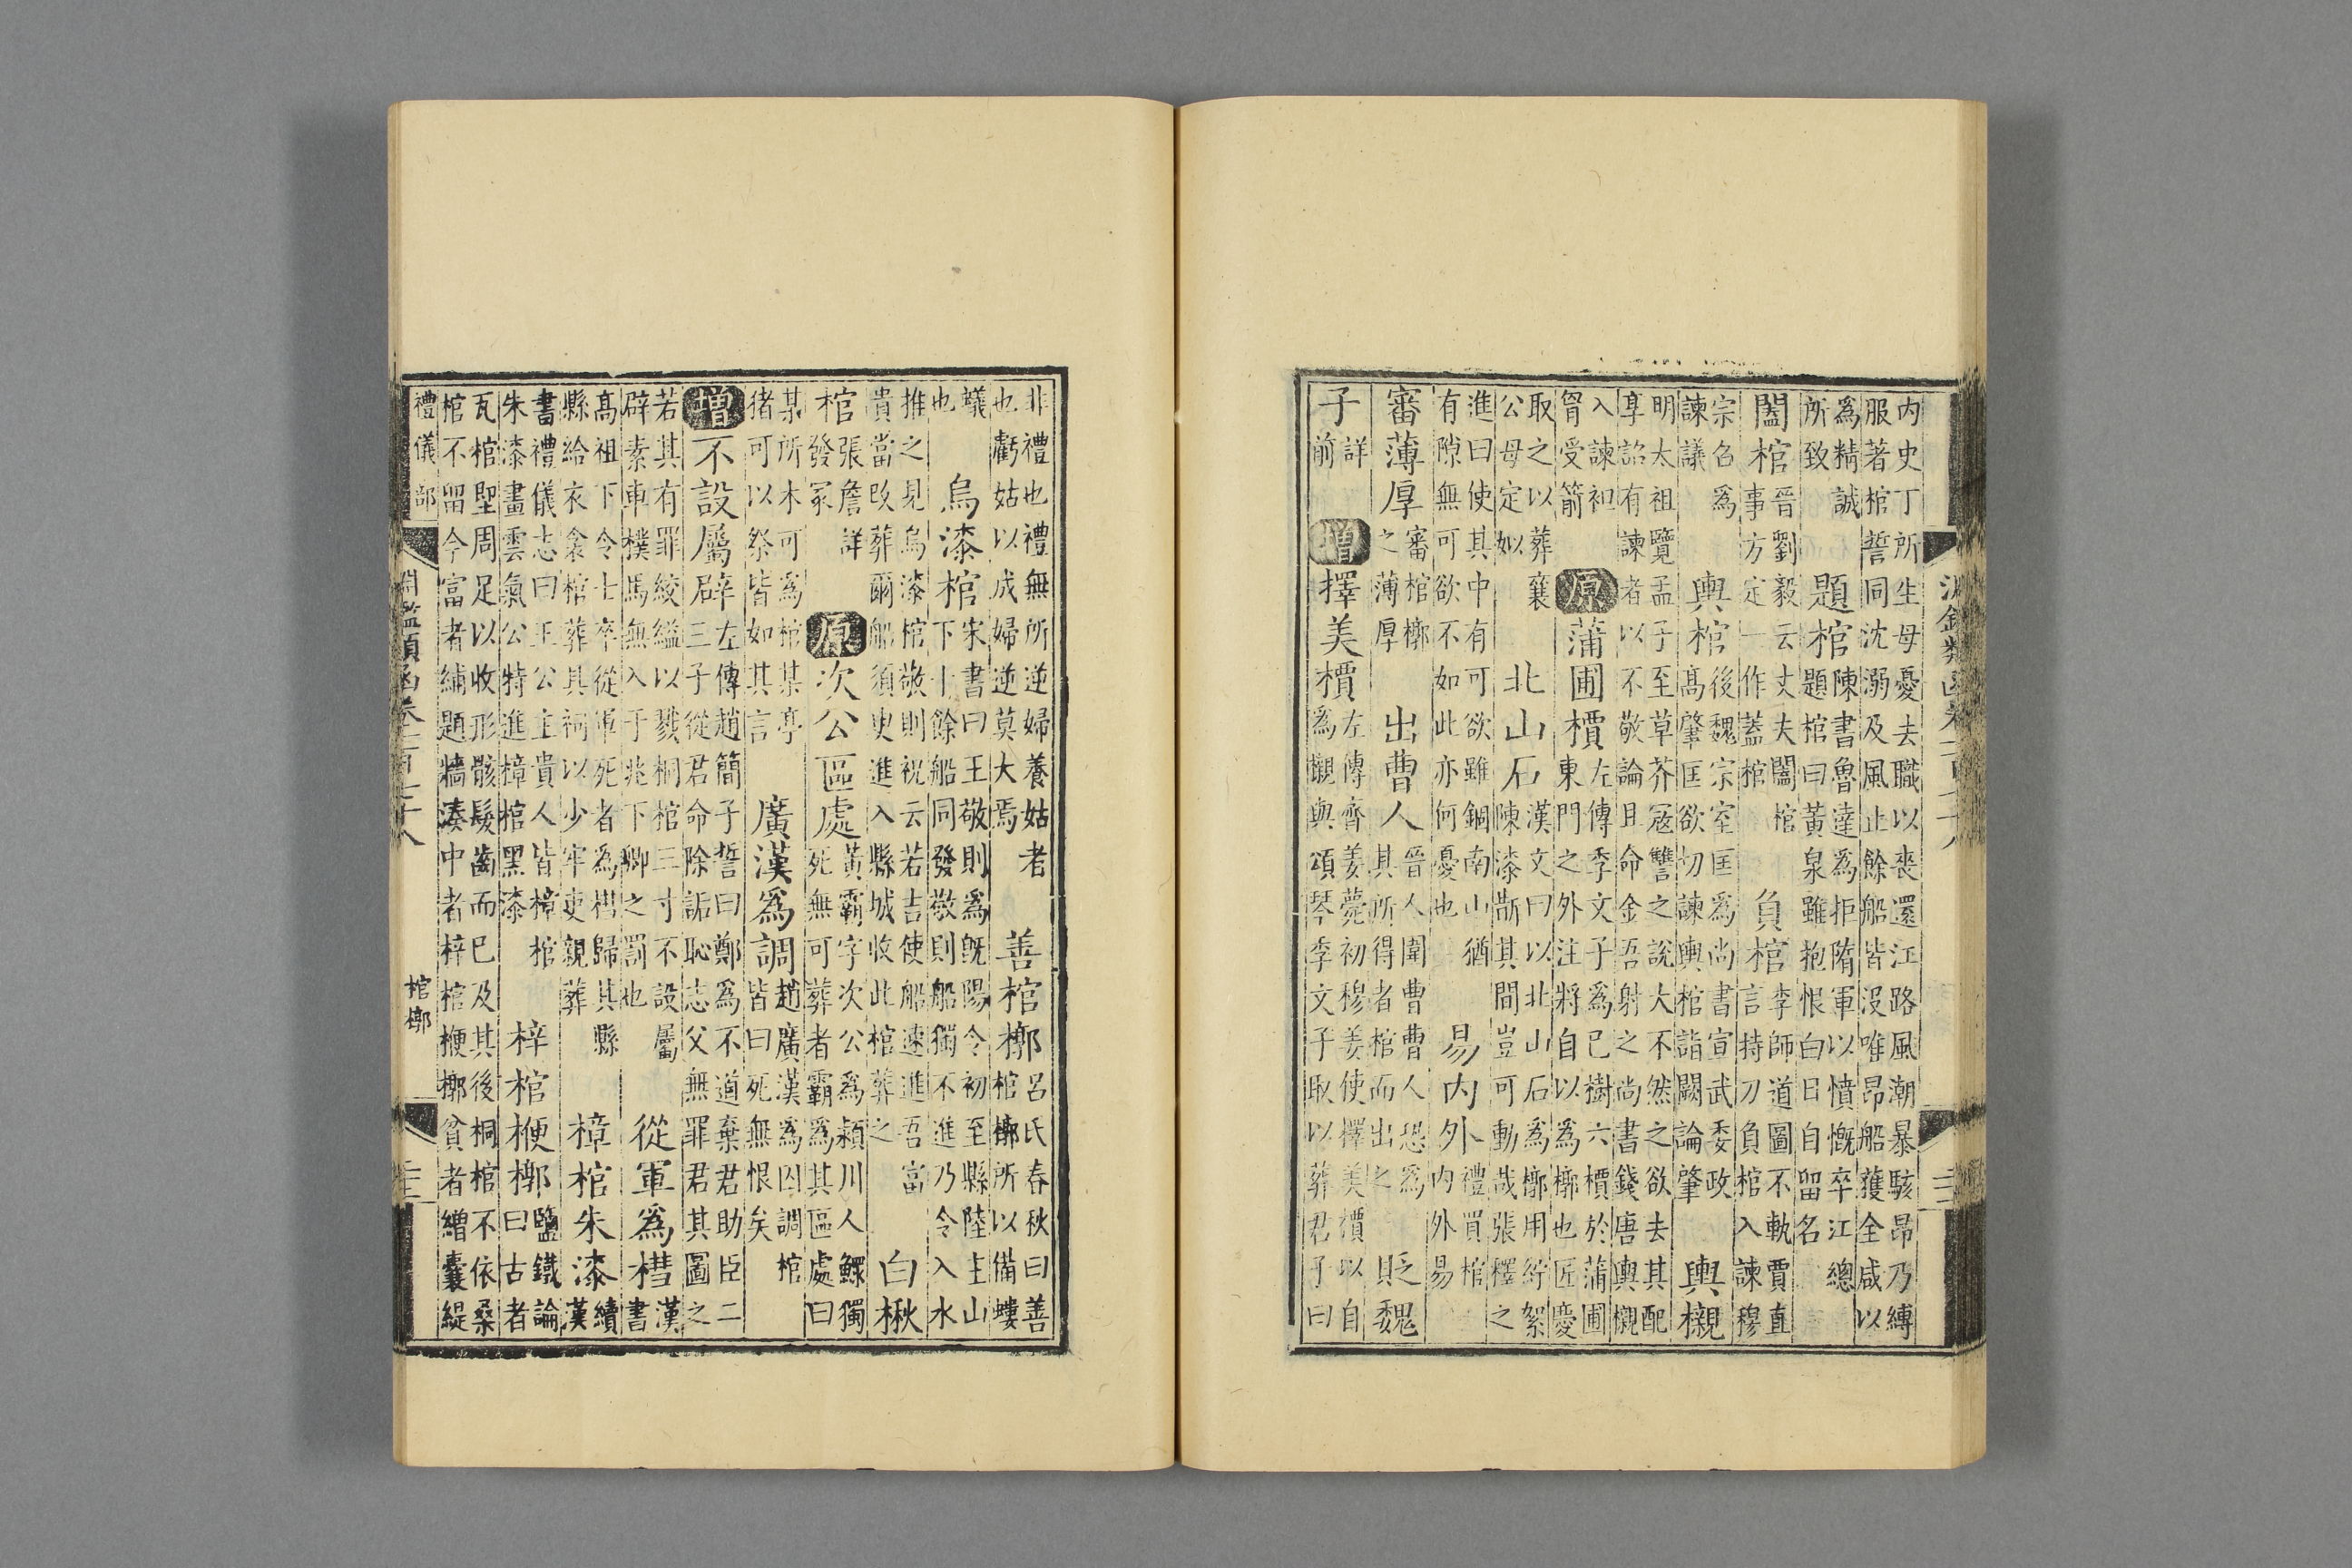 内史丁所生母憂去職以喪還江路風潮暴駭昂乃縛
服著棺誓同沈溺及風止餘船皆沒唯昂船獲全咸以
為精誠所致 題棺 陳書魯達為拒隋軍以憤慨卒江總題棺曰黄泉雖抱恨白日自留名
闔棺 晉劉毅云丈夫闔棺事方定一作蓋棺 負棺 李師道圖不軌賈直言持刀負棺入諫穆
宗召為諫議 輿棺 後魏宗室匡為尚書宣武委政高肇匡欲切諫輿棺詣闕論肇 輿櫬
明太祖覽孟子至草芥寇讐之說大不然之欲去其配
享詔有諫者以不敬論且命金吾射之尚書錢唐輿櫬
入諫袒胷受箭 原 蒲圃檟 左傳季文子為己樹六檟於蒲圃東門之外注將自以為槨也匠慶
取之以葬襄公母定姒 北山石 漢文曰以北山石為槨用紵絮陳漆斮其間豈可動哉張釋之
進曰使其中有可欲雖錮南山猶有隙無可欲不如此亦何憂也 易内外 禮買棺内外易
審薄厚 審棺槨之薄厚 出曹人 晉人圍曹曹人恐為其所得者棺而出之 貶魏
子 詳前 增 擇美檟 左傳齊姜薨初穆姜使擇美檟以自為櫬與頌琴季文子取以葬君子曰
非禮也禮無所逆婦養姑者也虧姑以成婦逆莫大焉 善棺槨 呂氏春秋曰善棺槨所以備螻
蟻也 烏漆棺 宋書曰王敬則為旣陽令初至縣陸主山下十餘船同發敬則船獨不進乃令入水
推之見烏漆棺敬則祝云若吉使船速進吾富貴當改葬爾船須臾進入縣城收此棺葬之 白楸
棺 張詹詳發冢 原 次公區處 黃霸字次公為潁川人鰥獨死無可葬者霸為其區處曰
某所木可為棺某亭猪可以祭皆如其言 廣漢為調 趙廣漢為囚調棺皆曰死無恨矣
增 不設屬辟 左傳趙簡子誓曰鄭為不道棄君助臣二三子從君命除詬恥志父無罪君其圖之
若其有罪絞縊以戮桐棺三寸不設屬
辟素車樸馬無入于兆下卿之罰也 從軍為槥 漢書
高祖下令士卒從軍死者為槥歸其縣縣給衣衾棺葬具祠以少牢吏親葬 樟棺朱漆 續漢
書禮儀志曰王公主貴人皆樟棺朱漆畫雲氣公特進樟棺黑漆 梓棺楩槨 鹽鐵論曰古者
瓦棺堲周足以收形骸髮齒而已及其後桐棺不依桑
棺不留今富者繡題牆湊中者梓棺楩槨貧者繒囊緹
禮儀部
棺槨